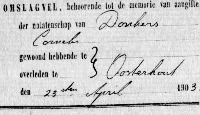 OMSLAGVEL, behoorende tot de memorie van aangifte
der nalatenschap van Donkers
Cornelis
gewoond hebbende te
overleden te Oosterhout
den 23sten April 1903